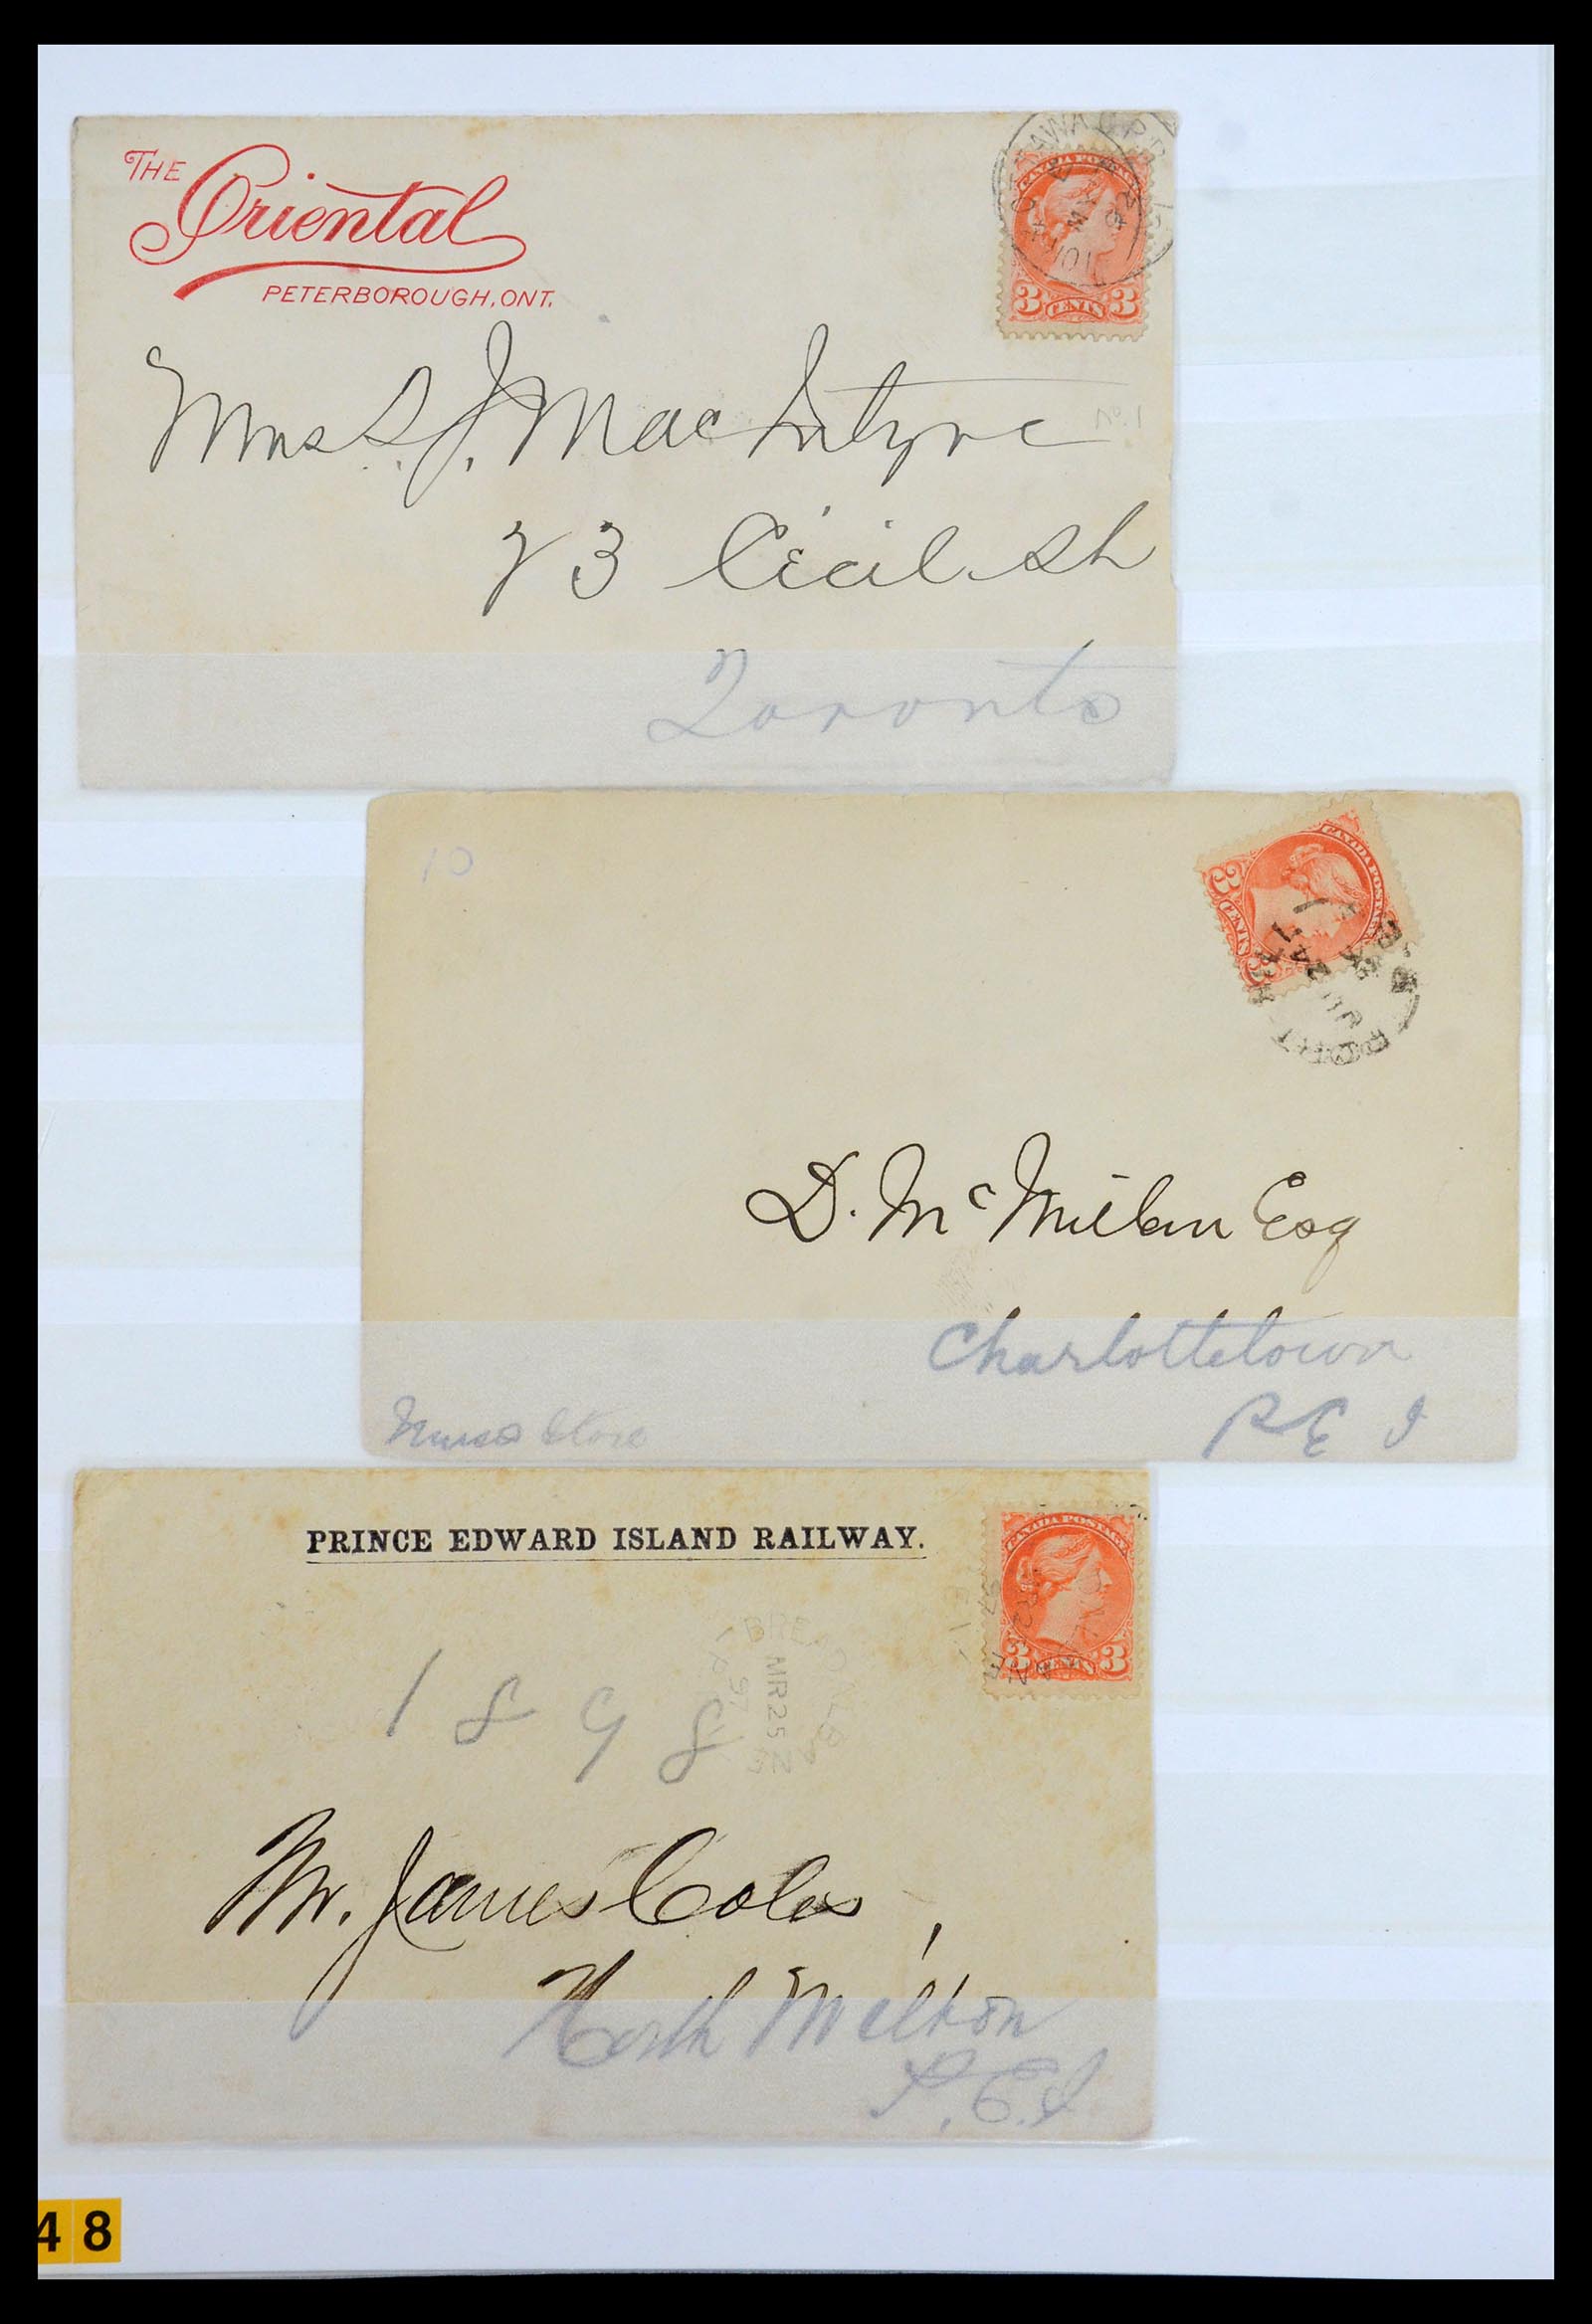 THE
Oriental
PETERBOROUGH, ONT.
CANADA POSTAGE
3 CENTS 3
Mrs S. J. MacIntyre
No. 1
73 Cecil St
Toronto
10
CANADA POSTAGE
3 CENTS 3
PORT
D. McMillan Esq
Charlottetown
P E I
PRINCE EDWARD ISLAND RAILWAY.
CANADA POSTAGE
3 CENTS 3
MR 25
97
1898
Mr. James Coles,
North Milton
P.E.I
48